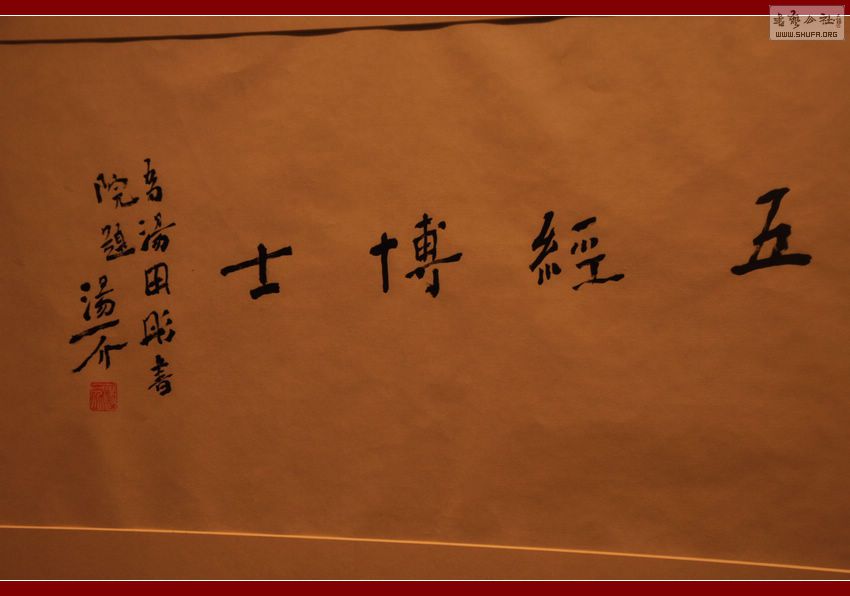 五經博士
為湯用彤書
院題
湯一介
書藝公社
WWW.SHUFA.ORG